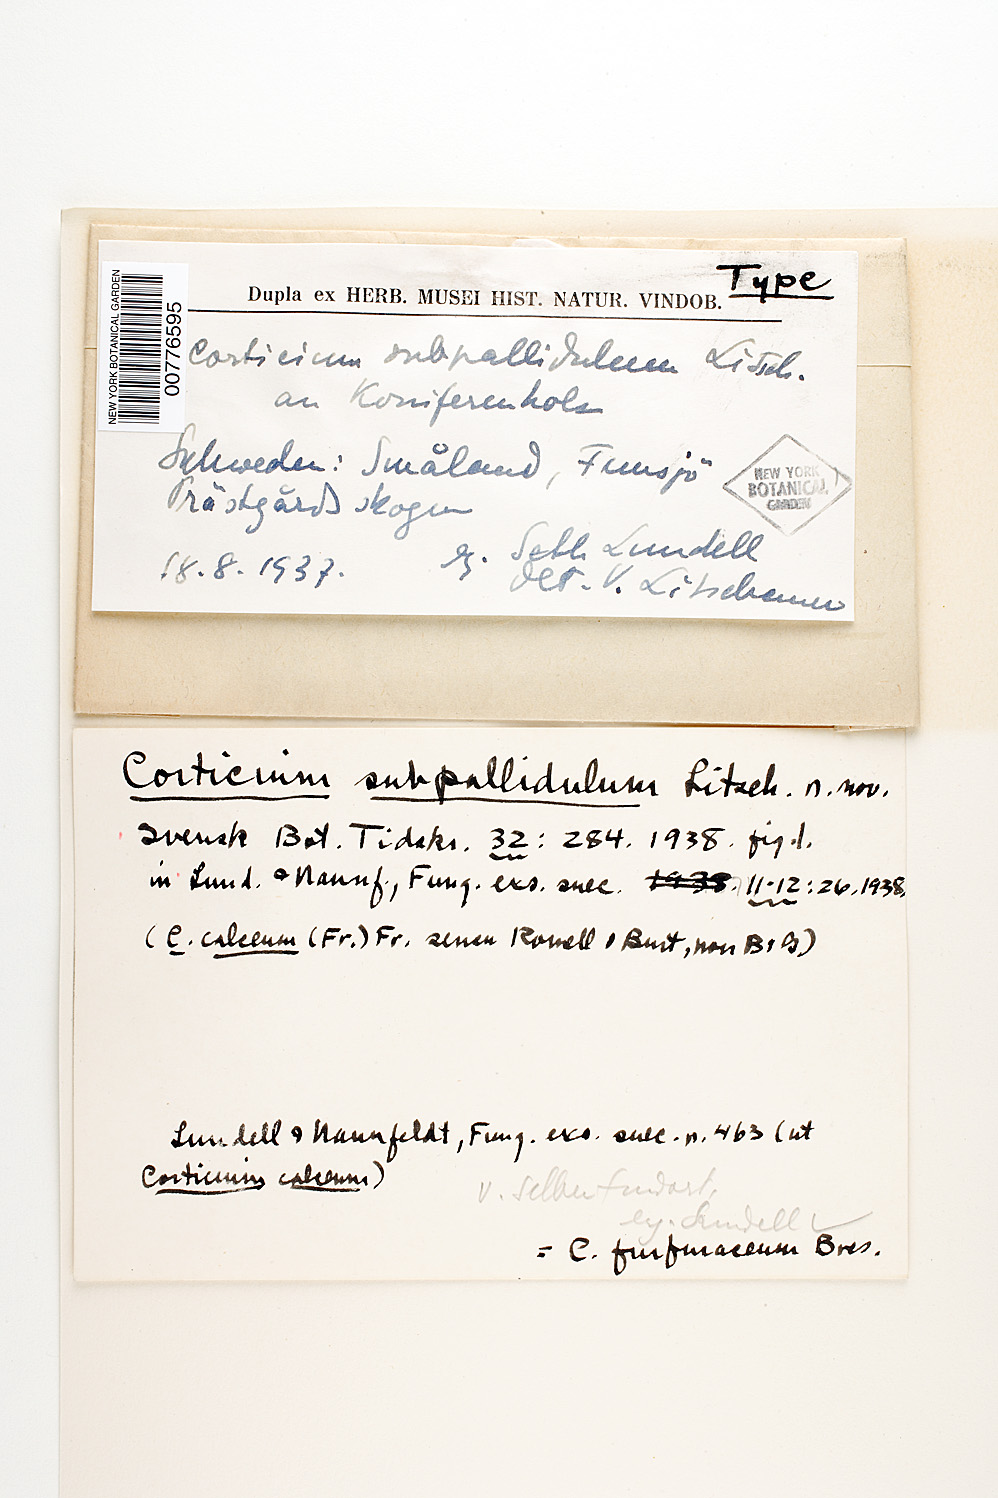 Type
Dupla ex HERB. MUSEI HIST. NATUR. VINDOB.
NEW YORK BOTANICAL GARDEN
00776595
Corticium subpallidulum Litsch.
an Koniferenholz
Schweden: Småland, Femsjö
Prästgårdsskogen
NEW YORK
BOTANICAL
GARDEN
18.8.1937.
lg. Seth Lundell
det. V. Litschauer
Corticium subpallidulum Litsch. n. nov.
Svensk Bot. Tidskr. 32: 284. 1938. fig. 1.
in Lund. & Nannf., Fung. exs. suec. 11-12: 26. 1938.
(C. calceum (Fr.) Fr. sensu Romell & Burt, non B & G)
Lundell & Nannfeldt, Fung. exs. suec. n. 463 (ut
Corticium calceum)
v. selben Fundort.
lg. Lundell
= C. furfuraceum Bres.